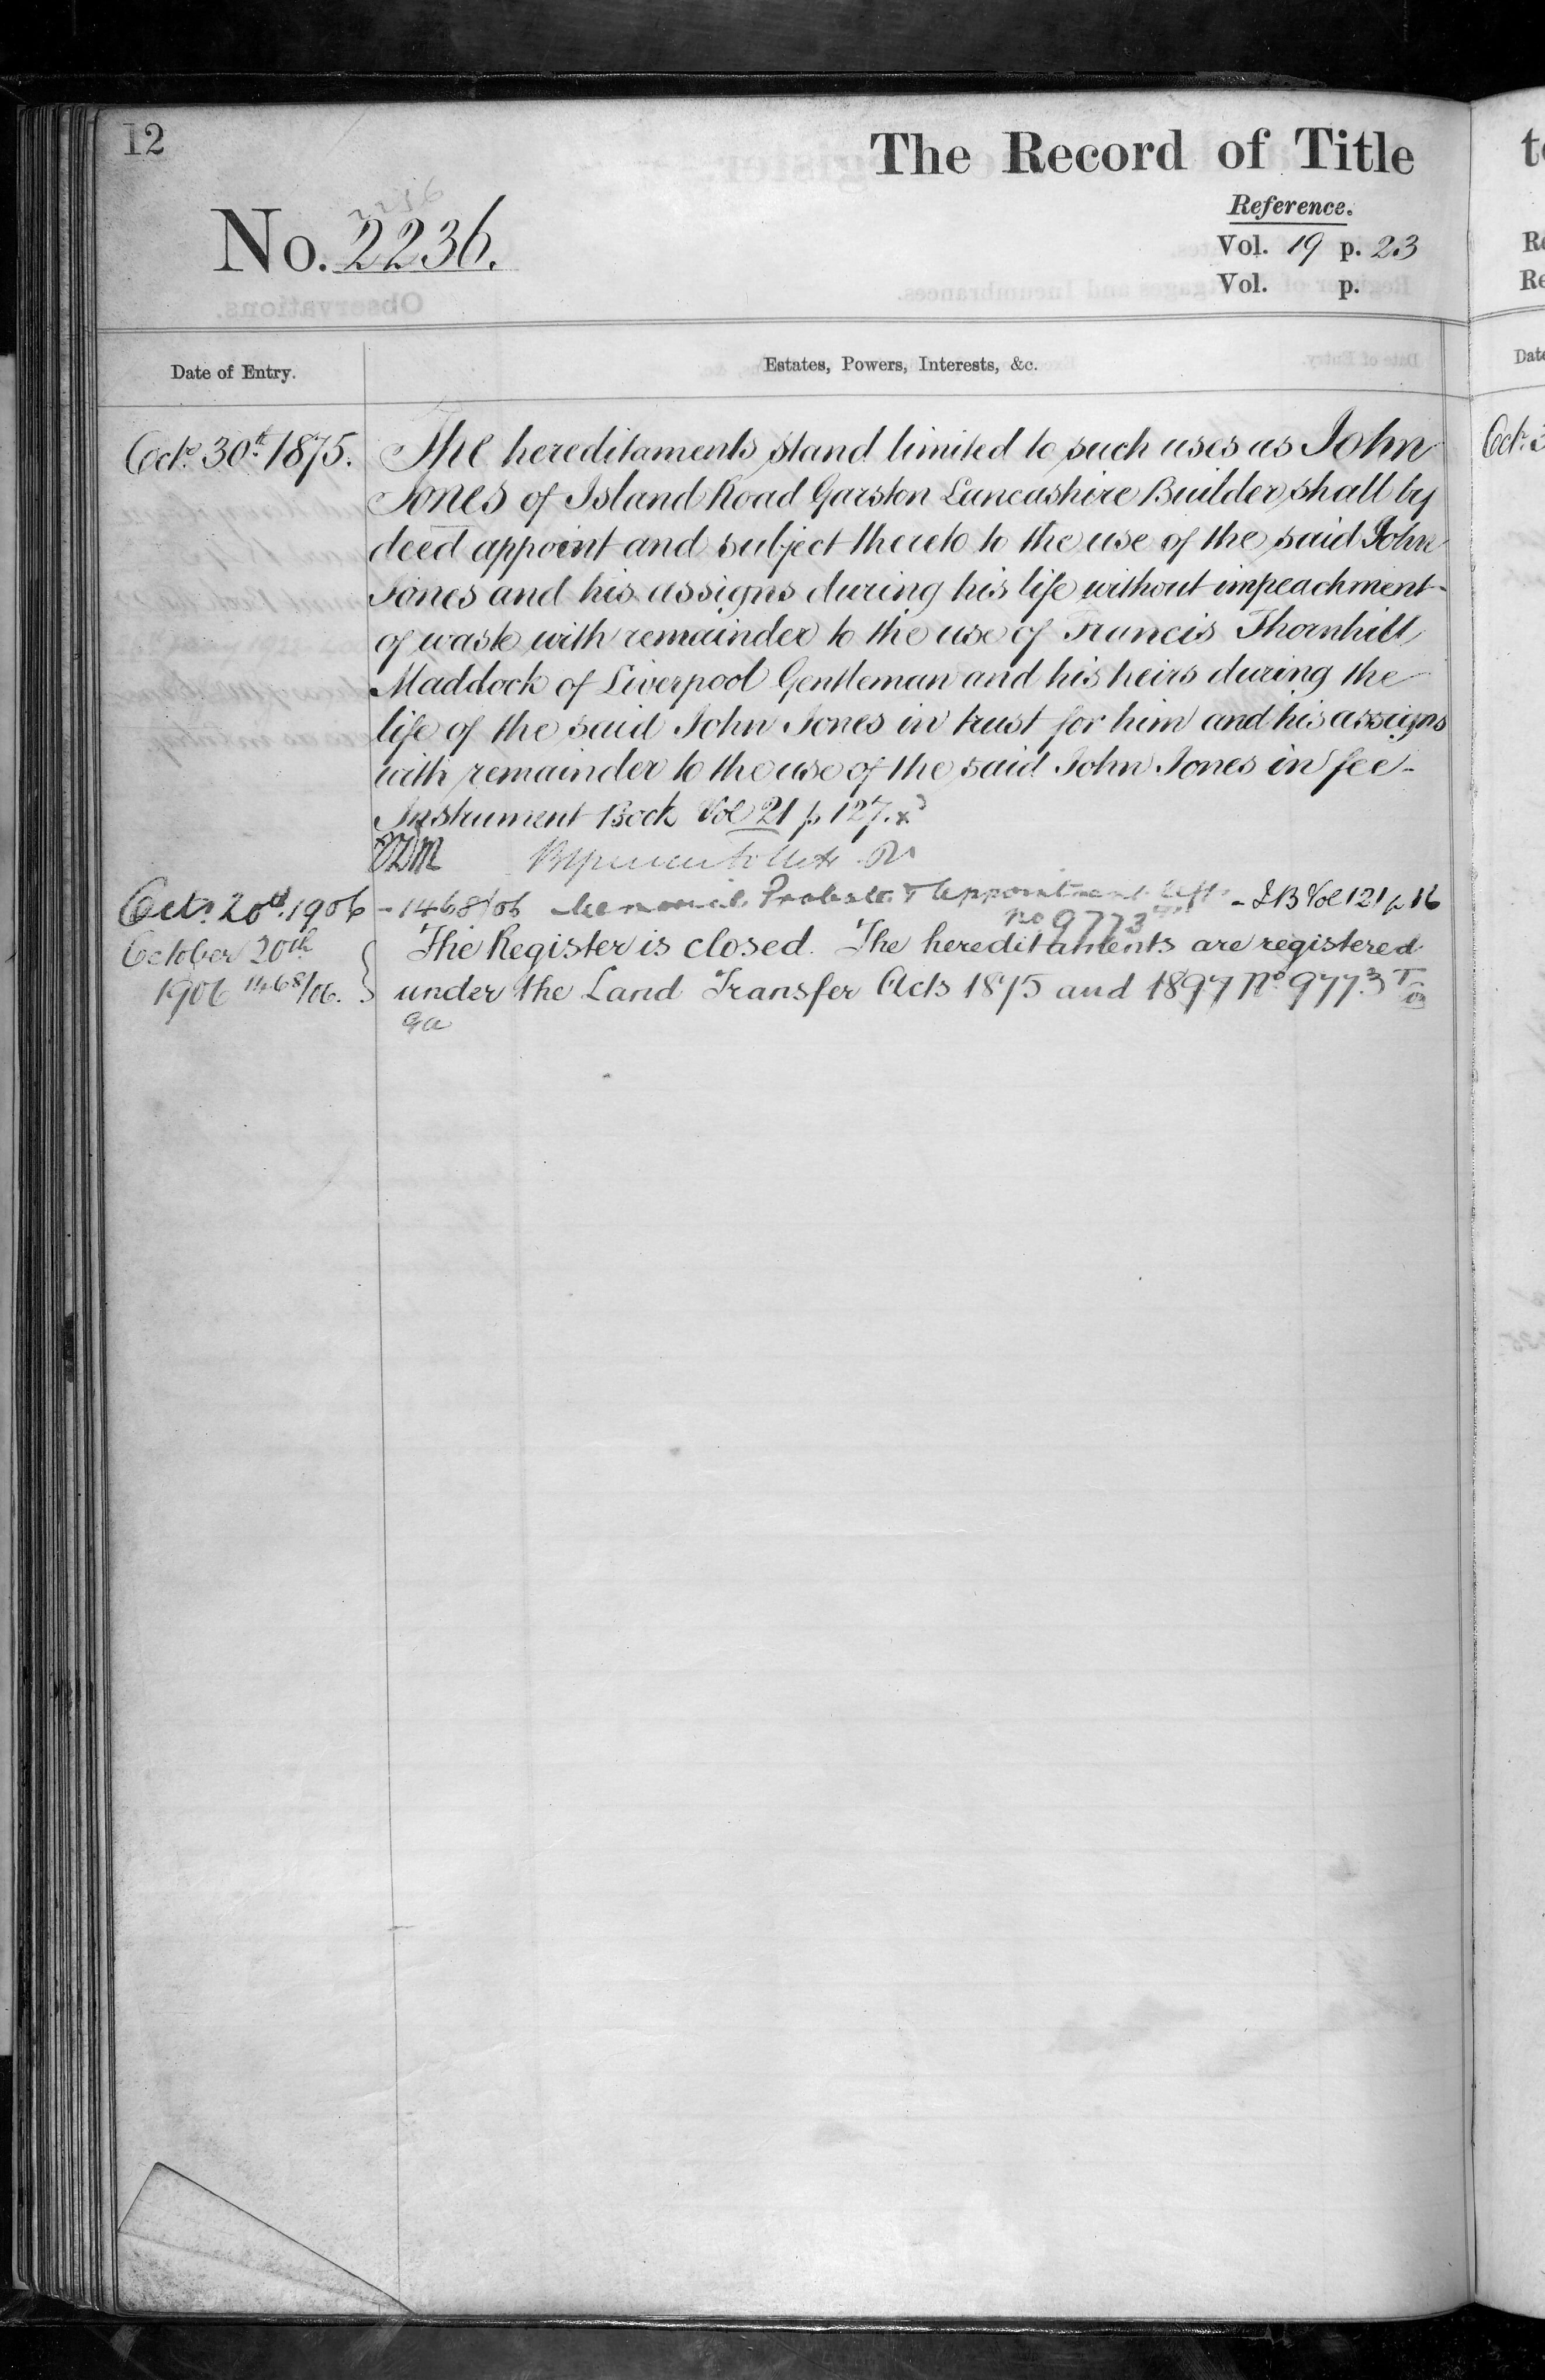 12
The Record of Title
No. 2236.
Reference.
Vol. 19 p. 23
Vol. p.
Date of Entry.
Estates, Powers, Interests, &c.
Octr. 30th. 1875.
The hereditaments stand limited to such uses as John
Jones of Island Road Garston Lancashire Builder shall by
deed appoint and subject thereto to the use of the said John
Jones and his assigns during his life without impeachment
of waste with remainder to the use of Francis Thornhill
Maddock of Liverpool Gentleman and his heirs during the
life of the said John Jones in trust for him and his assigns
with remainder to the use of the said John Jones in fee -
Instrument Book Vol 21 p 127. x
Octr. 20th. 1906 - 1468/06 Memorial Probate & Appointment left - I B Vol 121 p 16
No 9773
October 20th
1906 1468/06.
The Register is closed. The hereditaments are registered
under the Land Transfer Acts 1875 and 1897 No 9773